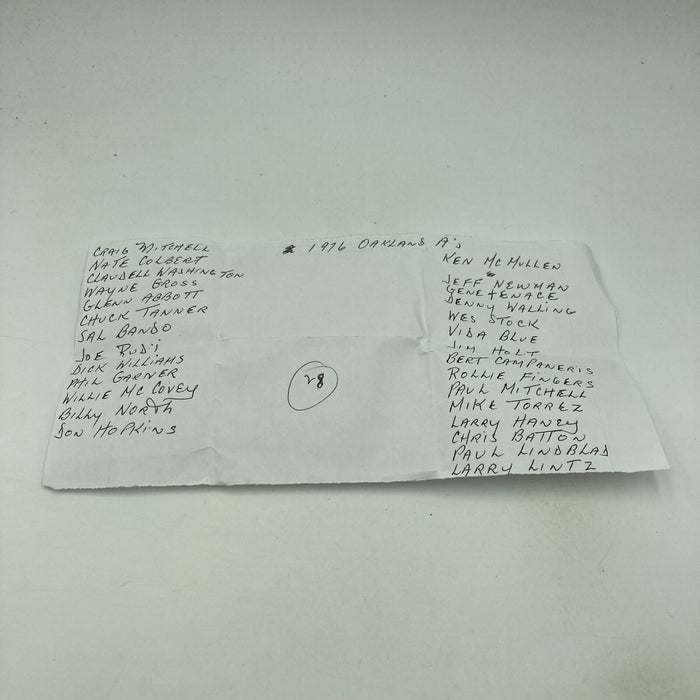 * 1976 OAKLAND A's
CRAIG MITCHELL
NATE COLBERT
CLAUDELL WASHINGTON
WAYNE GROSS
GLENN ABBOTT
CHUCK TANNER
SAL BANDO
JOE RUDI
DICK WILLIAMS
PHIL GARNER
WILLIE MCCOVEY
BILLY NORTH
DON HOPKINS
28
KEN MCMULLEN
JEFF NEWMAN
GENE TENACE
DENNY WALLING
WES STOCK
VIDA BLUE
JIM HOLT
BERT CAMPANERIS
ROLLIE FINGERS
PAUL MITCHELL
MIKE TORREZ
LARRY HANEY
CHRIS BATTON
PAUL LINDBLAD
LARRY LINTZ